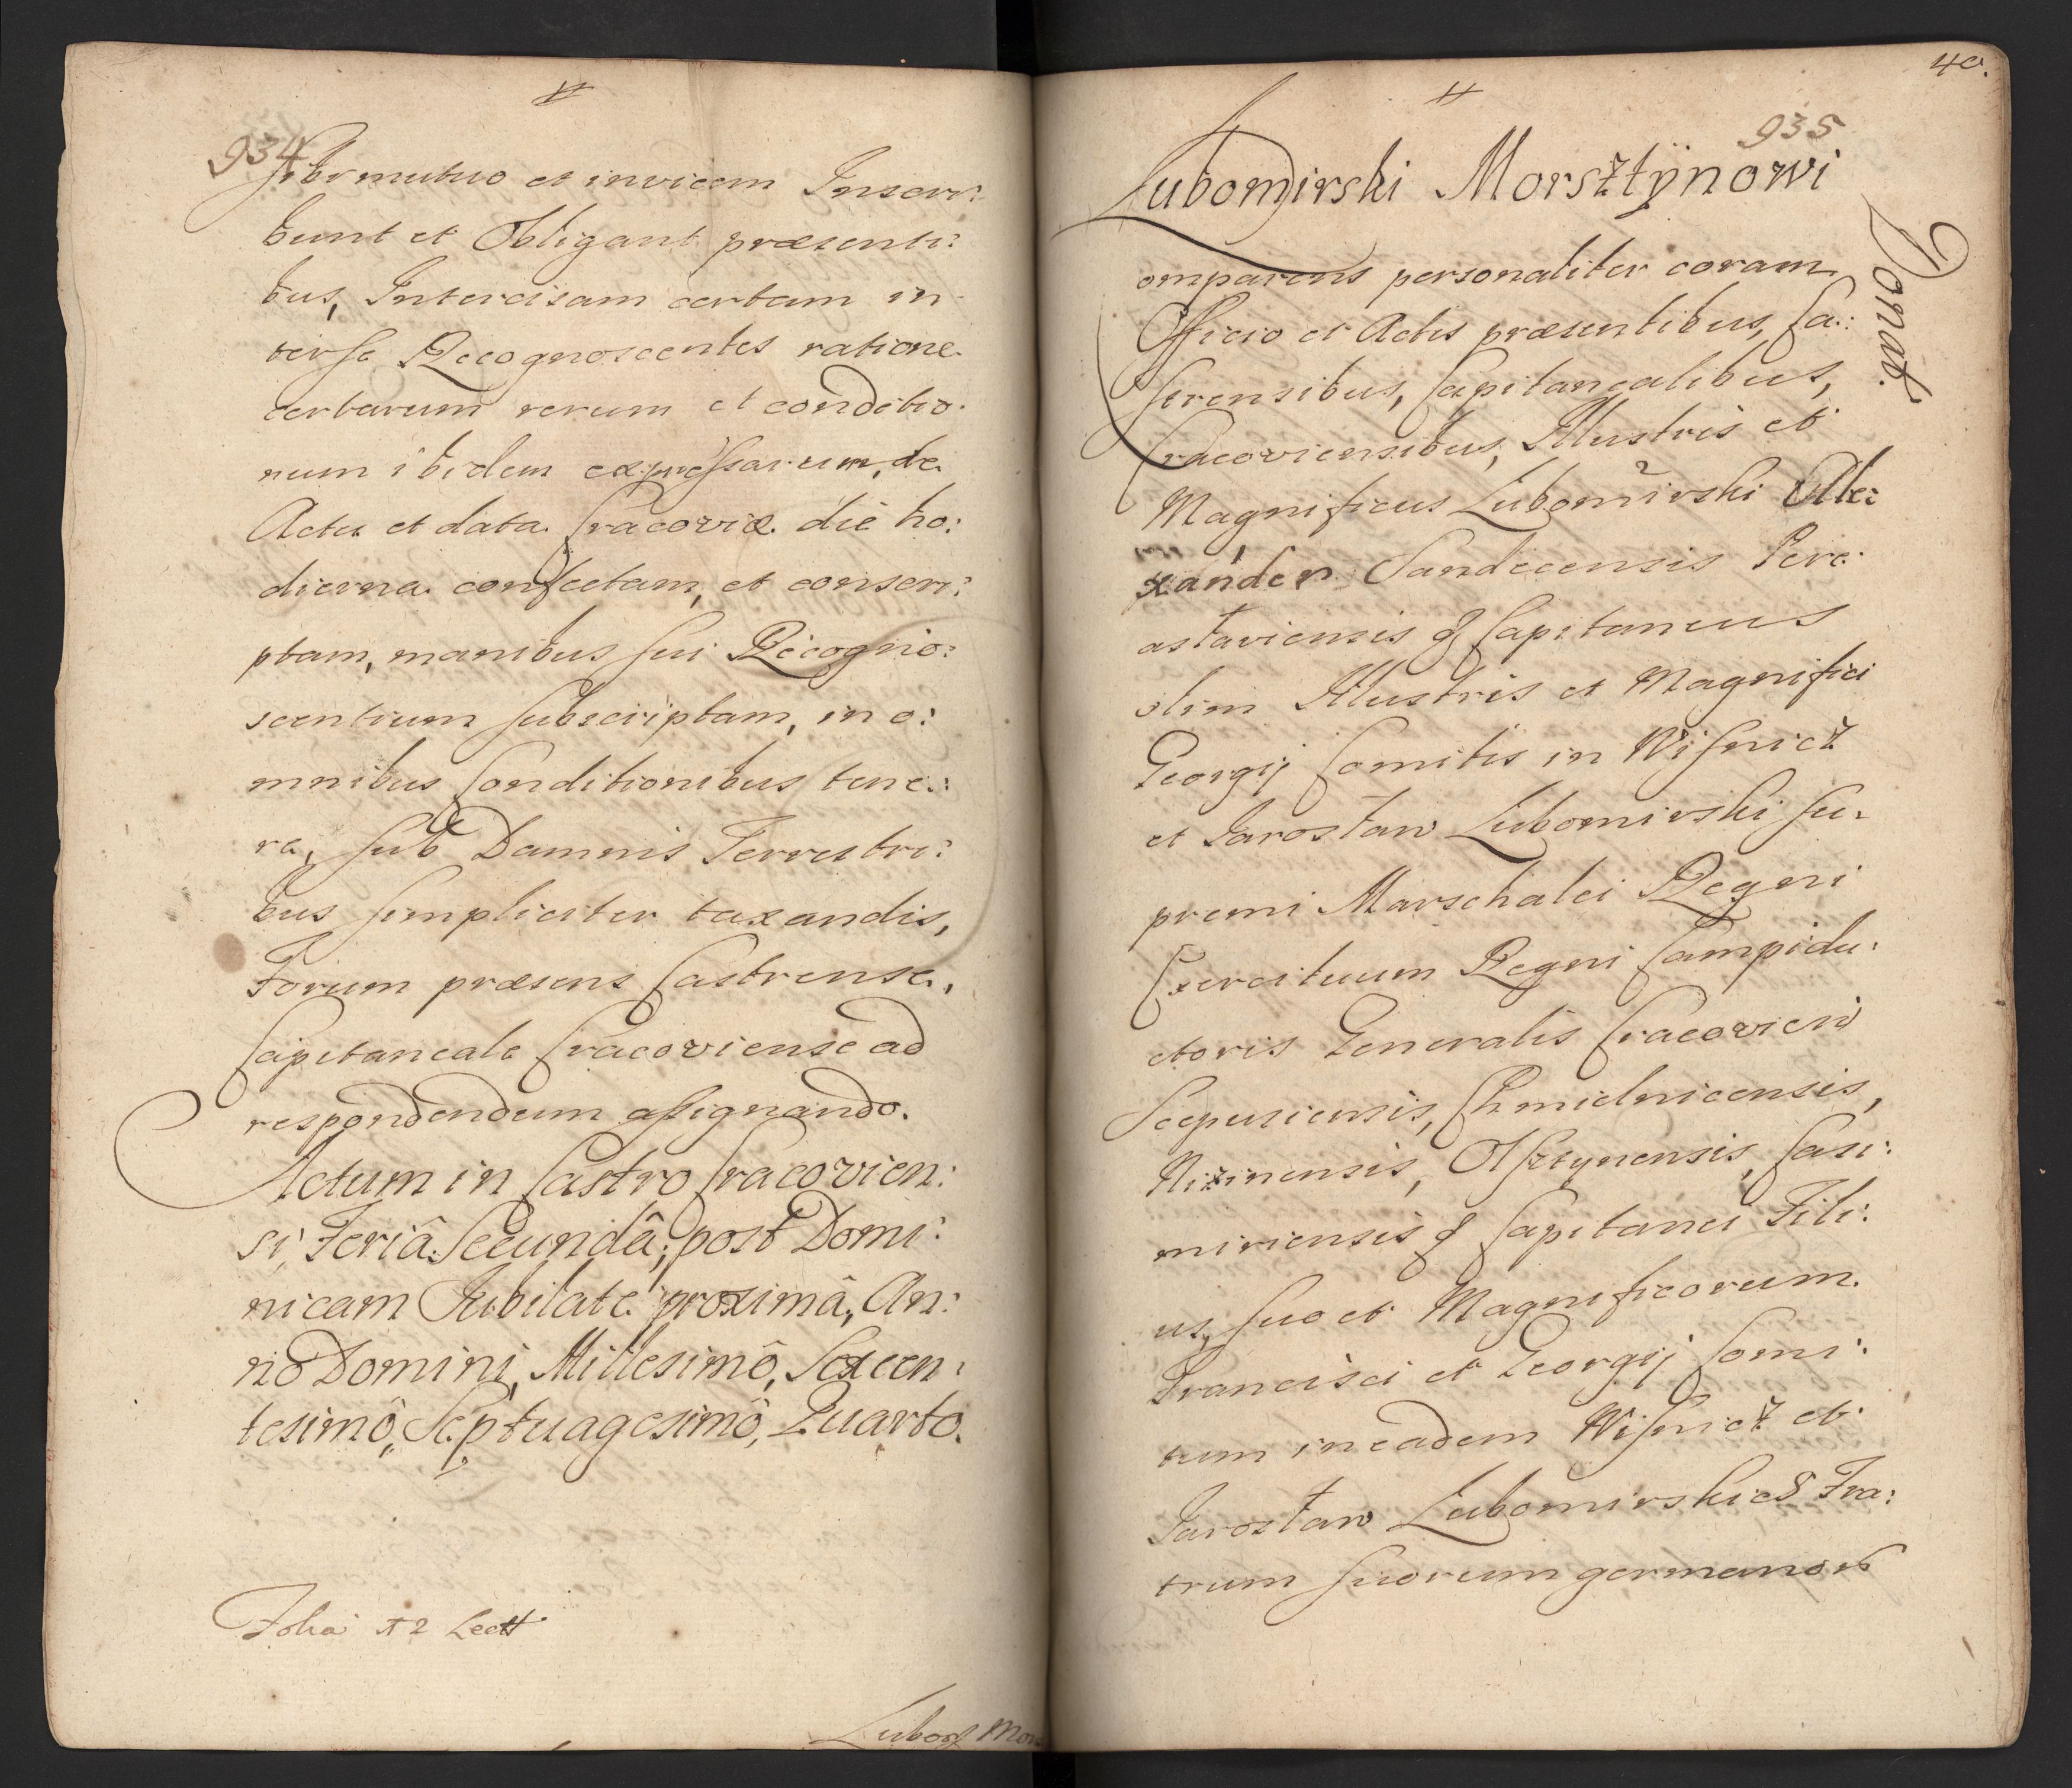 934
sibi mutuo et invicem Inscri:
bunt et Obligant præsenti:
bus, Intercisam certam in
ter se Recognoscentes ratione
certarum rerum et conditio:
num ibidem expressarum, de
Actu et data Cracoviæ die ho:
dierna confectam, et conscri:
ptam, manibus sui Recogno:
scentium subscriptam, in o:
mnibus Conditionibus tene:
re, sub Damnis Terrestri:
bus simpliciter taxandis,
Forum præsens Castrense,
Capitaneale Cracoviense ad
respondendum assignando.
Actum in Castro Cracovien:
si, Feriâ Secundâ, post Domi:
nicam Jubilate proximâ, An:
nô Domini, Millesimô, Sexcen:
tesimô, Septuagesimô, Quarto.
Folia 42 Lect
Lubom Mors
40.
935
Lubomirski Morsztÿnowi
Donat.
omparens personaliter coram
Officio et Actis præsentibus, Ca:
strensibus, Capitanealibus,
Cracoviensibus, Illustris et
Magnificus Lubomirski Ale:
xander Sandecensis Pere:
aslaviensis q Capitaneus
olim Illustris et Magnifici
Georgij Comitis in Wisnicz
et Jarosław Lubomirski Su:
premi Marschalci Regni
Exercituum Regni Campidu:
ctoris Generalis Cracovien
Scepusiensis, Chmielnicensis,
Nizinensis, Olsztynensis, Casi:
miriensis q Capitanei Fili:
us, suo et Magnificorum
Francisci et Georgij Comi:
tum in eadem Wisnicz et
Jarosław Lubomirskich Fra:
trum suorum germanor